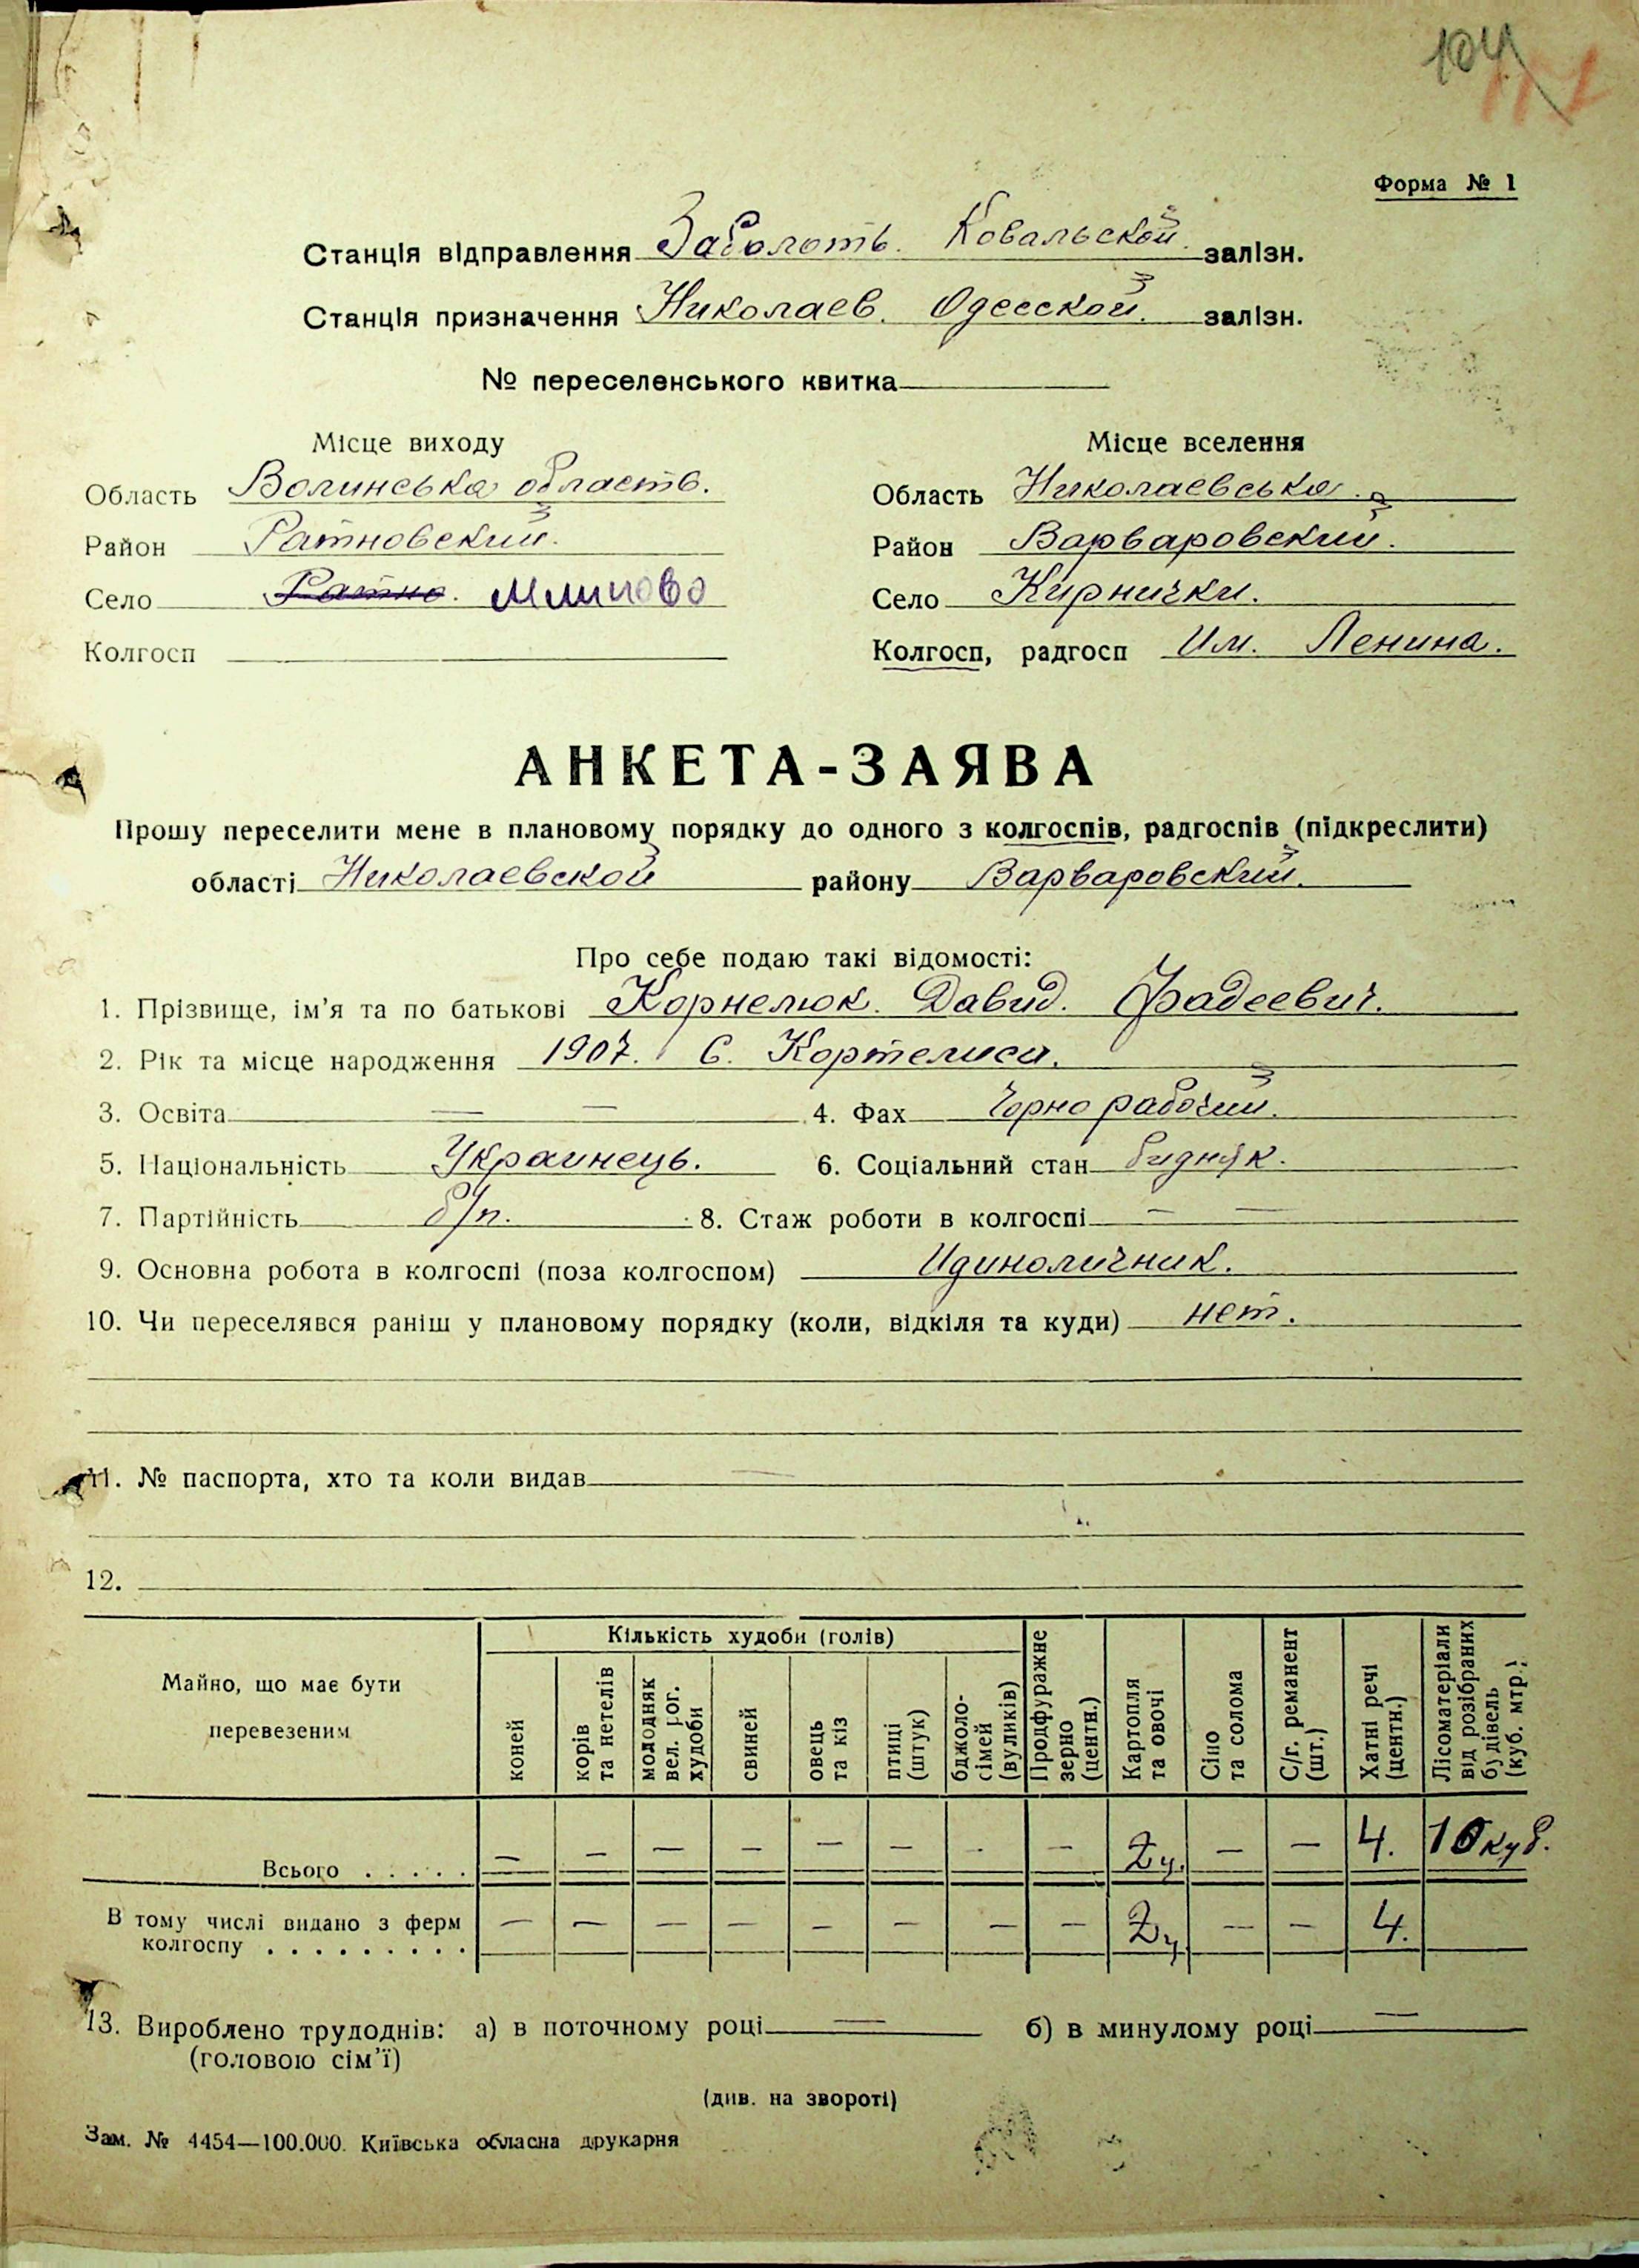 104 117
Форма № 1
Станція відправлення Заболоть. Ковальской залізн.
Станція призначення Николаев. Одесской. залізн.
№ переселенського квитка
Місце виходу Місце вселення
Область Волинська область. Область Николаевська.
Район Ратновский. Район Варваровский.
Село Ратно. Млиново Село Кирнички.
Колгосп Колгосп, радгосп Им. Ленина.
АНКЕТА-ЗАЯВА
Прошу переселити мене в плановому порядку до одного з колгоспів, радгоспів (підкреслити)
області Николаевской району Варваровский.
Про себе подаю такі відомості:
1. Прізвище, ім'я та по батькові Корнелюк. Давид. Фадеевич.
2. Рік та місце народження 1907. С. Кортелиси.
3. Освіта — — 4. Фах Чорно рабочий.
5. Національність Украинець. 6. Соціальний стан бидняк.
7. Партійність б/п. 8. Стаж роботи в колгоспі — —
9. Основна робота в колгоспі (поза колгоспом) Идиноличник.
10. Чи переселявся раніш у плановому порядку (коли, відкіля та куди) нет.
11. № паспорта, хто та коли видав —
12.
Майно, що має бути перевезеним
Кількість худоби (голів)
коней
корів та нетелів
молодняк вел. рог. худоби
свиней
овець та кіз
птиці (штук)
бджоло-сімей (вуликів)
Продфуражне зерно (центн.)
Картопля та овочі
Сіно та солома
С/г. реманент (шт.)
Хатні речі (центн.)
Лісоматеріали від розібраних будівель (куб. мтр.)
Всього . . . . . — — — — — — - — 2ц. — — 4. 10 куб.
В тому числі видано з ферм
колгоспу . . . . . . . . . — — — — — — — — 2ц — — 4.
13. Вироблено трудоднів: а) в поточному році — б) в минулому році —
(головою сім'ї)
(див. на звороті)
Зам. № 4454—100.000. Київська обласна друкарня